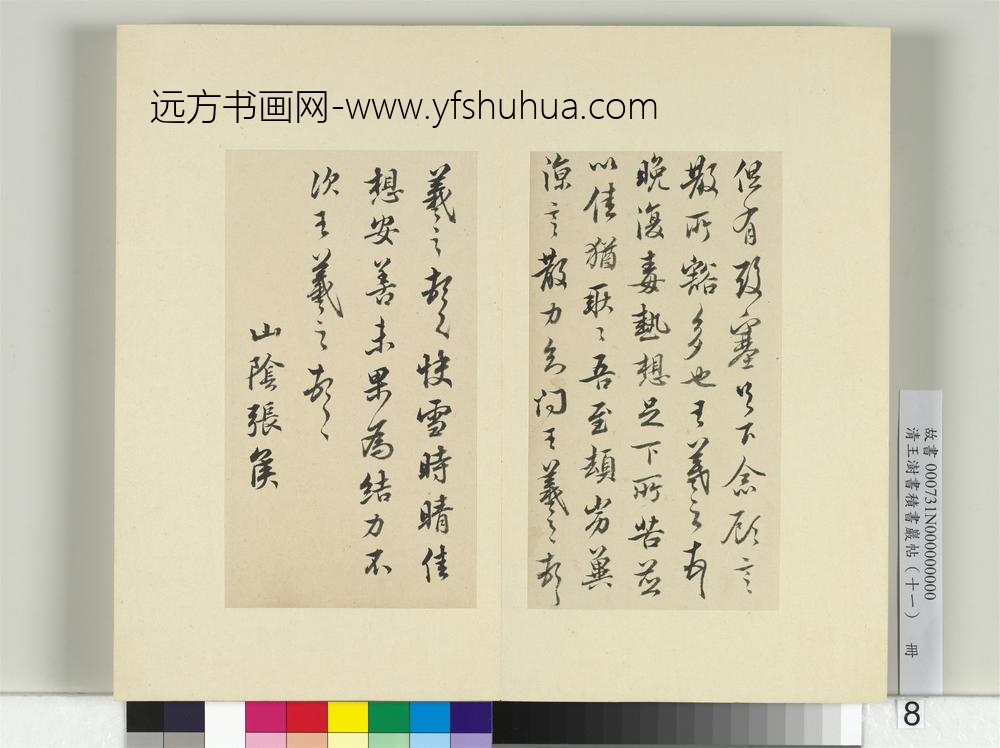 远方书画网-www.yfshuhua.com
但有致塞下念顧言
散所豁多也王羲之頓首
晚復毒熱想足下所苦並
以佳猶耿耿吾至頓劣冀
涼言散力知問王羲之頓首
羲之頓首快雪時晴佳
想安善未果為結力不
次王羲之頓首
山陰張侯
故書 000731N000000000
清王澍書積書巖帖（十一） 冊
8